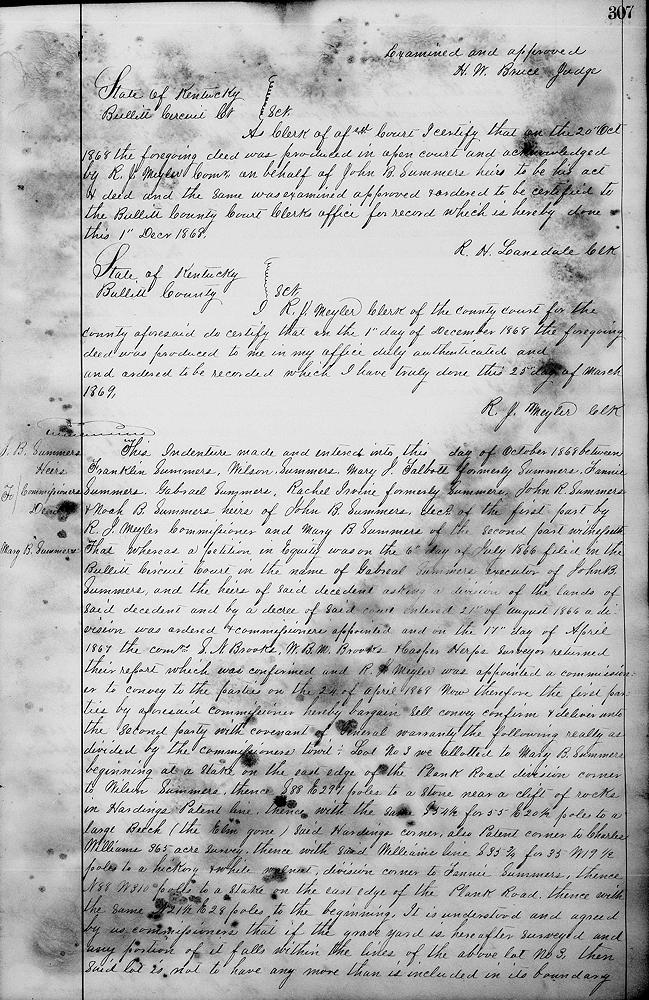 307
Examined and approved
H. W. Bruce Judge
State of Kentucky
Bullitt Circuit Ct } Sct.
As Clerk of afsd Court I certify that on the 20" Oct
1868 the foregoing deed was produced in open court and acknowledged
by R. J. Meyler Comr, on behalf of John B. Summers heirs to be his act
& deed and the same was examined approved & ordered to be certified to
the Bullitt County Court Clerks office for record which is hereby done
this 1" Decr 1868.
R. H. Lansdale Clk
State of Kentucky
Bullitt County } Sct.
I R. J. Meyler Clerk of the county court for the
county aforesaid do certify that on the 1" day of December 1868 the foregoing
deed was produced to me in my office duly authenticated and
and ordered to be recorded which I have truly done this 25 day of March
1869,
R. J. Meyler Clk
J. B. Summers
Heirs
To } Commissioners
Deed
Mary B. Summers
This Indenture made and entered into this day of October 1868 between
Franklin Summers, Wilson Summers, Mary J. Talbott formerly Summers, Fannie
Summers, Gabrael Summers, Rachel Irvine formerly Summers, John R. Summers
& Noah B Summers heirs of John B. Summers, Decd of the first part by
R. J. Meyler Commissioner and Mary B Summers of the second part witnesseth
That whereas a petition in Equity was on the 6" day of July 1866 filed in the
Bullitt Circuit Court in the name of Gabreal Summers executor of John B.
Summers, and the heirs of said decedent asking a division of the lands of
said decedent and by a decree of said court entered 21st of August 1866 a di-
vision was ordered & commissioners appointed and on the 17" day of April
1867 the comrs S. A Brooks, W. B. M. Brooks & Casper Herps Surveyor returned
their report which was confirmed and R. J. Meyler was appointed a commission-
er to convey to the parties on the 24 of april 1868 Now therefore the first par-
ties by aforesaid commissioner hereby bargain sell convey confirm & deliver unto
the second party with covenant of General warranty the following realty as
divided by the commissioners towit: Lot No 3 we allotted to Mary B. Summers
beginning at a stake on the east edge of the Plank Road division corner
to Wilson Summers, thence S88 E297 poles to a stone near a clift of rocks
in Hardings Patent line, thence with the same S54½ for 55 E20¾ poles to a
large Beech (the Elm gone) said Hardings corner, also Patent corner to Charles
Williams 365 acre survey, thence with said Williams line S35¾ for 35 W19½
poles to a hickory & white walnut, division corner to Fannie Summers, thence
N88 W310 poles to a stake on the east edge of the Plank Road. thence with
the same N21½ E28 poles to the beginning, It is understood and agreed
by us commissioners that if the grave yard is hereafter surveyed and
any portion of it falls within the lines of the above lot No 3, then
said lot is not to have any more than is included in its boundary